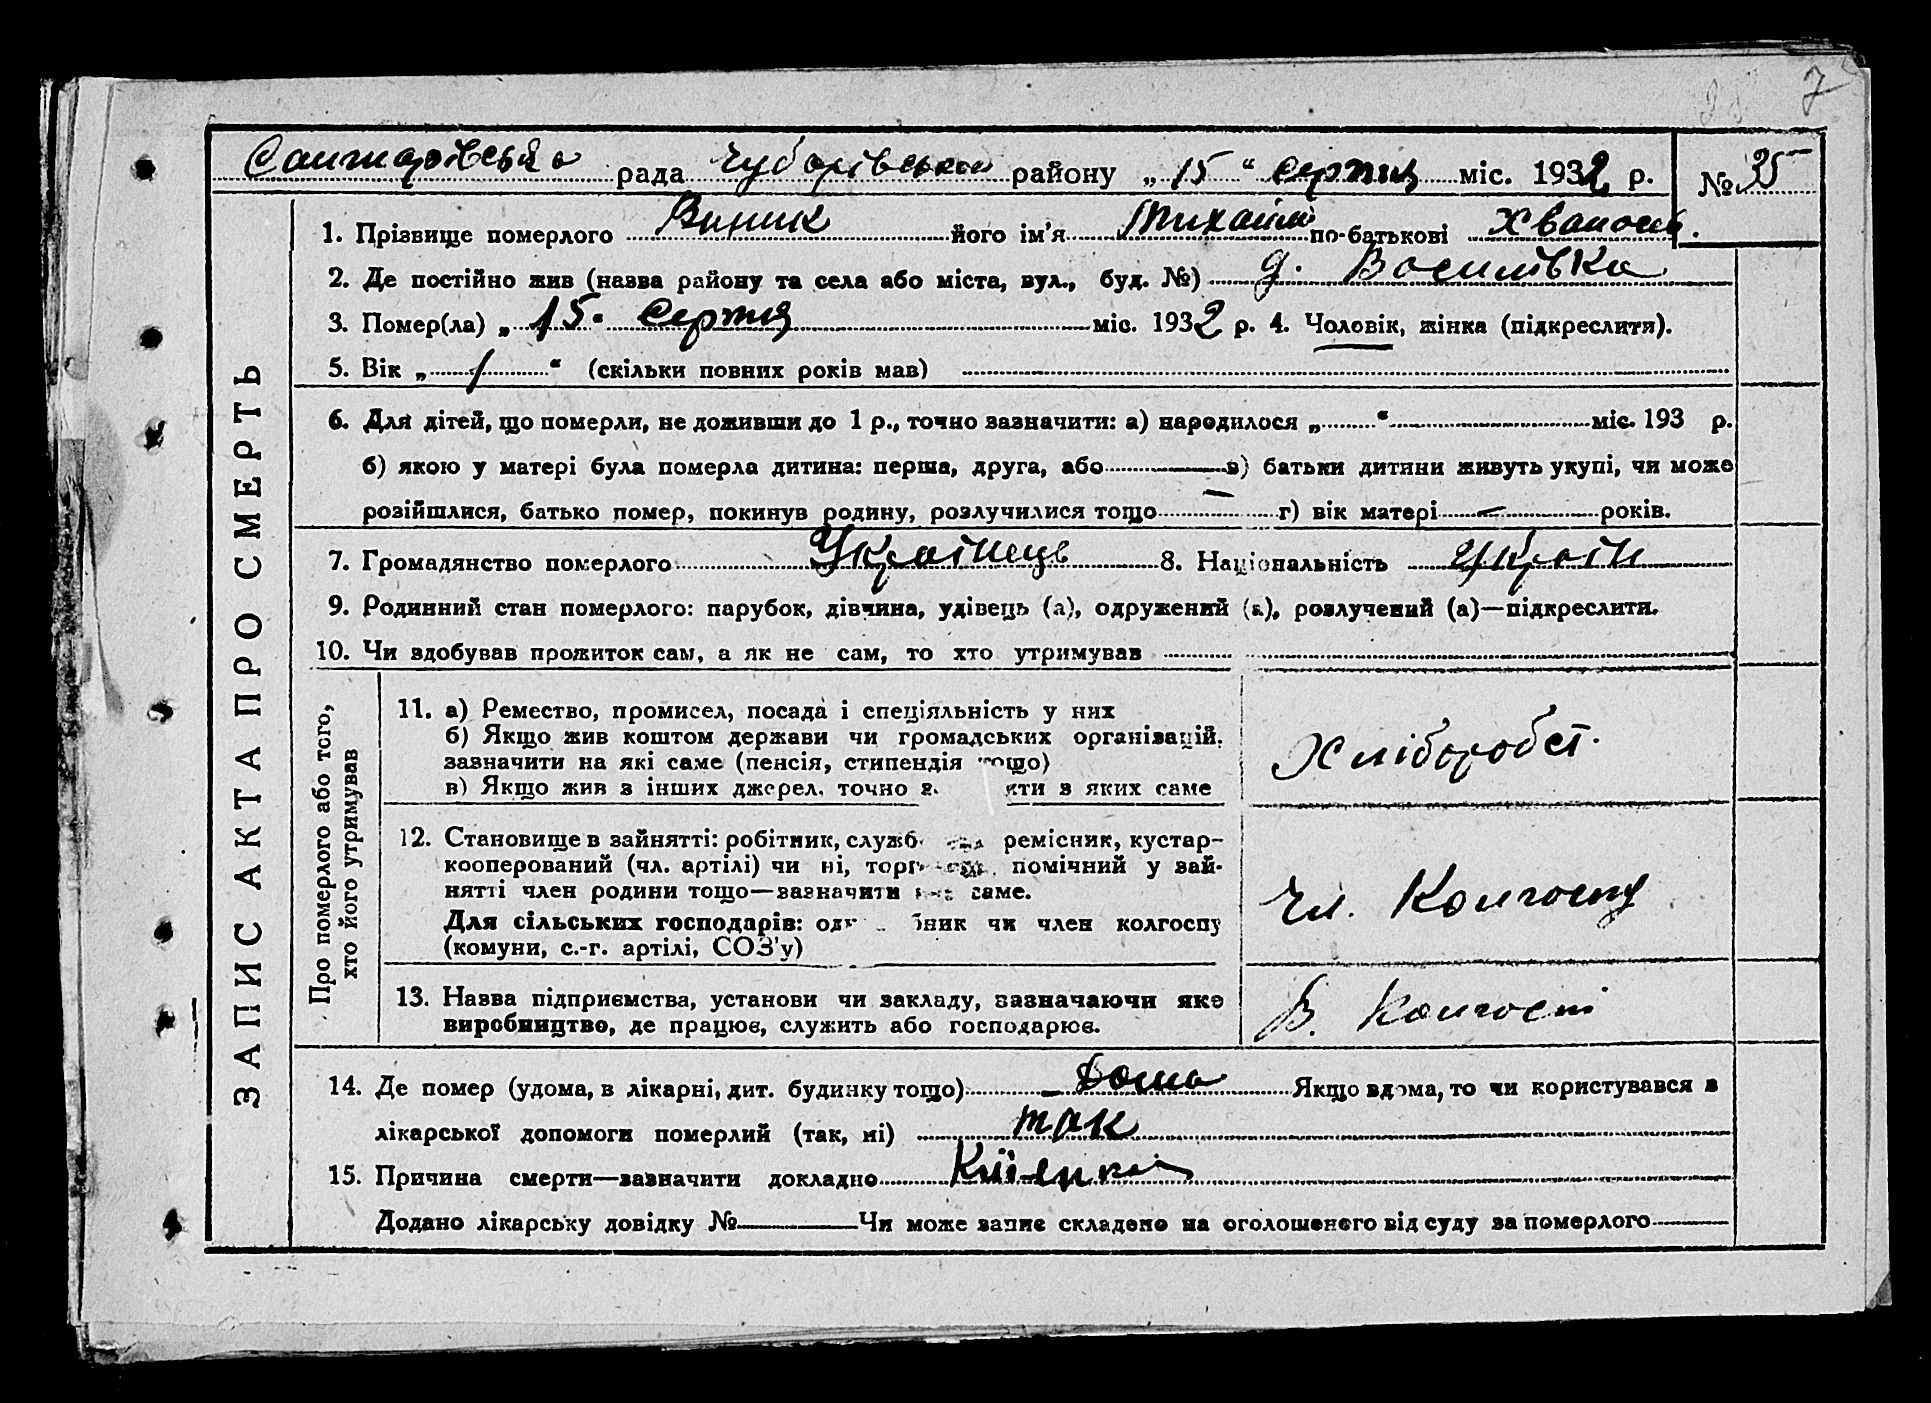 7
рада Чубарівськ району „ 15 “ серпня міс. 1932 р. № 35
1. Прізвище померлого Виник його ім'я Михайло по-батькові
2. Де постійно жив (назва району та села або міста, вул., буд. №) д. Василівка
3. Помер(ла) „ 15 “ серпня міс. 1932 р. 4. Чоловік, жінка (підкреслити).
5. Вік „ 1 “ (скільки повних років мав)
6. Для дітей, що померли, не доживши до 1 р., точно зазначити: а) народилося „ “ міс. 193 р.
б) якою у матері була померла дитина: перша, друга, або — в) батьки дитини живуть укупі, чи може
розійшлися, батько помер, покинув родину, розлучилися тощо — г) вік матері — років.
7. Громадянство померлого Українець 8. Національність Україн
9. Родинний стан померлого: парубок, дівчина, удівець (а), одружений (а), розлучений (а)—підкреслити.
10. Чи здобував прожиток сам, а як не сам, то хто утримував
ЗАПИС АКТА ПРО СМЕРТЬ
Про померлого або того,
хто його утримував
11. а) Ремество, промисел, посада і спеціяльність у них
б) Якщо жив коштом держави чи громадських організацій,
зазначити на які саме (пенсія, стипендія тощо)
в) Якщо жив з інших джерел, точно з яких саме
Хліборобст.
12. Становище в зайнятті: робітник, служб ремісник, кустар-
кооперований (чл. артілі) чи ні, помічний у зай-
нятті член родини тощо—зазначити саме.
Для сільських господарів: чи член колгоспу
(комуни, с.-г. артілі, СОЗ'у)
Чл. Колгоспу
13. Назва підприємства, установи чи закладу, зазначаючи яке
виробництво, де працює, служить або господарює.
В. Колгоспі
14. Де помер (удома, в лікарні, дит. будинку тощо) Дома Якщо вдома, то чи користувався з
лікарської допомоги померлий (так, ні) так
15. Причина смерти—зазначити докладно
Додано лікарську довідку № — Чи може запис складено на оголошеного від суду за померлого